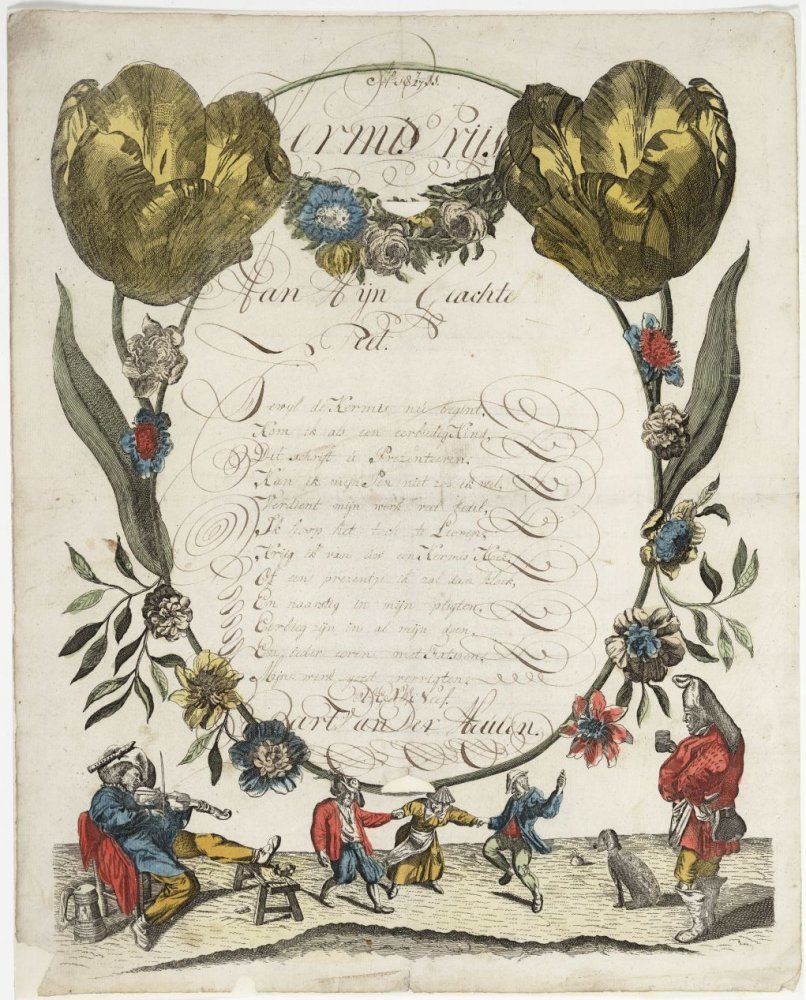 Kermis Prijs
Aan Mijn Geachte
Peet.
Dewijl de Kermis nu begint,
Kom ik als een eerbiedig Kind,
Dit schrift u Prezenteeren.
Kan ik mijn Pen niet zoo ik wel,
Verdient mijn werk veel
Ik hoop het toch te Leeren.
Krijg ik van dees een Kermis Koek,
Of een prezentje ik zal dan kloek,
En naarstig in mijn pligten,
Eerbieg zijn in al mijn doen,
En ieder eeren met fatsoen,
Mijn werk verrigten.
Uw Neef.
Bart Van Der Meulen.